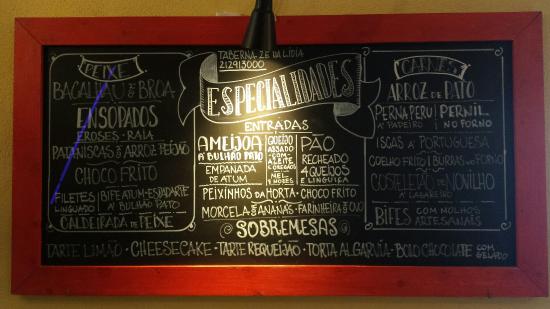 PEIXE
BACALHAU DE BROA
ENSOPADOS
EROSES - RAIA
PATANISCAS DE ARROZ FEIJÃO
CHOCO FRITO
FILETES LINGUADO | BIFE ATUM - ESPADARTE
À BULHÃO PATO
CALDEIRADA DE PEIXE
TABERNA ZÉ DA LIDIA
212913000
ESPECIALIDADES
ENTRADAS
AMEIJOA
À BULHÃO PATO
EMPANADA
DE ATUM
QUEIJO
ASSADO
COM
AZEITE
OREGÃOS
MEL
NOZES
PÃO
RECHEADO
4 QUEIJOS
E LINGUIÇA
PEIXINHOS DA HORTA - CHOCO FRITO
MORCELA DE ANANÁS - FARINHEIRA DE OVO
SOBREMESAS
TARTE LIMÃO · CHEESECAKE · TARTE REQUEIJÃO · TORTA ALGARVIA · BOLO CHOCOLATE COM GELADO
CARNES
ARROZ DE PATO
PERNA PERU À PADEIRO | PERNIL NO FORNO
ISCAS À PORTUGUESA
COELHO FRITO | BURRAS NO FORNO
COSTELETÃO DE NOVILHO
À LAGAREIRO
BIFES COM MOLHOS ARTESANAIS